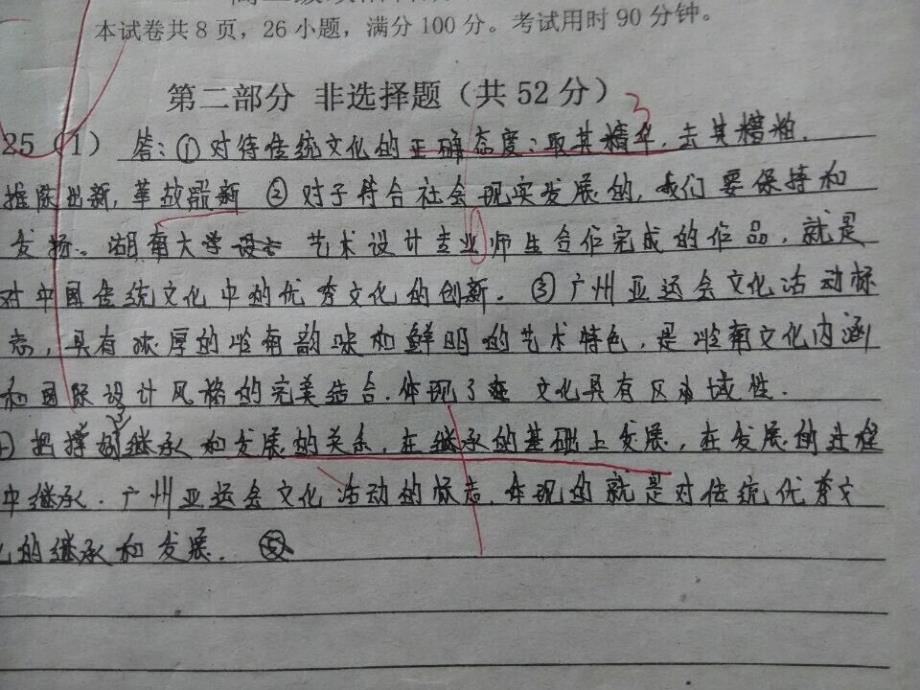 本试卷共8页，26小题，满分100分。考试用时90分钟。
第二部分 非选择题（共52分）
3
25（1） 答：①对待传统文化的正确态度：取其精华，去其糟粕，
推陈出新，革故鼎新 ②对于符合社会现实发展的，我们要保持和
发扬。湖南大学设计艺术设计专业师生合作完成的作品，就是
对中国传统文化中的优秀文化的创新。③广州亚运会文化活动标
志，具有浓厚的岭南韵味和鲜明的艺术特色，是岭南文化内涵
和国际设计风格的完美结合，体现了 文化具有区域性．
3
把握好继承和发展的关系，在继承的基础上发展，在发展的过程
中继承．广州亚运会文化活动的标志，体现的就是对传统优秀文
化的继承和发展． ⑤